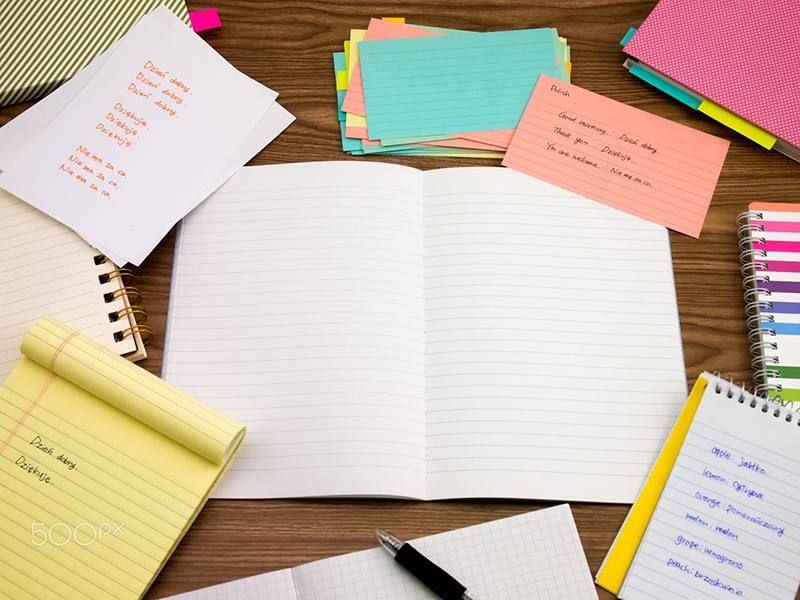 Dzień dobry.
Dzień dobry.
Dzień dobry.
Dziękuję.
Dziękuję.
Dziękuję.
Nie ma za co.
Nie ma za co.
Nie ma za co.
Polish
Good morning. : Dzień dobry.
Thank you. : Dziękuję.
You are welcome. : Nie ma za co.
Dzień dobry.
Dziękuję.
500px
apple: jabłko
lemon: cytryna
orange: pomarańczowy
melon: melon
grape: winogrono
peach: brzoskwinia